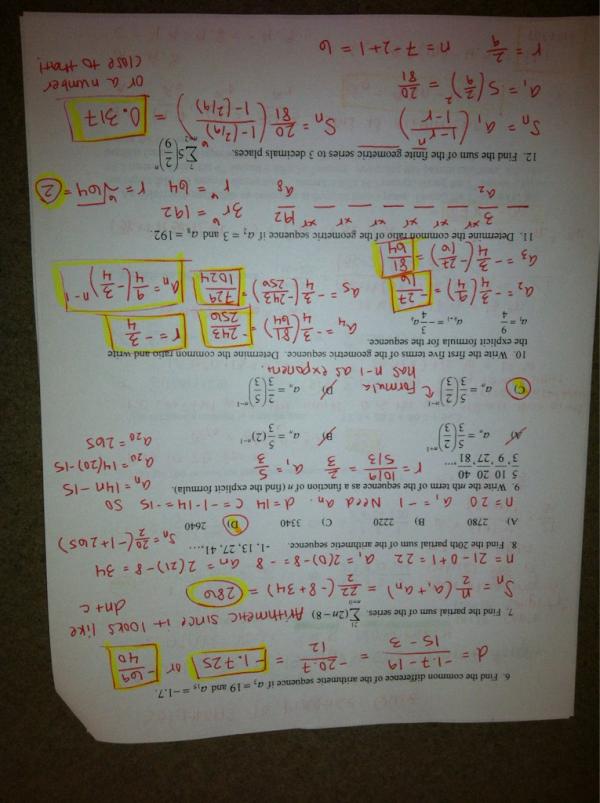 6. Find the common difference of the arithmetic sequence if a₃ = 19 and a₁₅ = −1.7.
d = (-1.7 - 19)/(15 - 3) = -20.7/12 = -1.725 or -69/40
7. Find the partial sum of the series. Σ_{n=0}^{21} (2n − 8) Arithmetic since it looks like dn + c
Sn = n/2 (a₁ + an) = 22/2 (-8 + 34) = 286
n = 21 - 0 + 1 = 22 a₁ = 2(0) - 8 = -8 an = 2(21) - 8 = 34
8. Find the 20th partial sum of the arithmetic sequence. −1, 13, 27, 41,...
Sn = 20/2 (-1 + 265)
A) 2780 B) 2220 C) 3340 D) 2640
n = 20 a₁ = -1 Need an. d = 14 c = -1 - 14 = -15 so
an = 14n - 15
a₂₀ = 14(20) - 15
a₂₀ = 265
9. Write the nth term of the sequence as a function of n (find the explicit formula).
5/3, 10/9, 20/27, 40/81, ...
r = (10/9)/(5/3) = 2/3 a₁ = 5/3
A) aₙ = 5/3 (2/3) B) aₙ = 5/3 (2)ⁿ⁻¹
C) aₙ = 5/3 (2/3)ⁿ⁻¹ D) aₙ = 2/3 (5/3)ⁿ⁻¹
Formula has n-1 as exponent.
10. Write the first five terms of the geometric sequence. Determine the common ratio and write
the explicit formula for the sequence.
a₁ = 9/4 aₖ₊₁ = −3/4 aₖ
r = -3/4
a₂ = -3/4 (9/4) = -27/16
a₃ = -3/4 (-27/16) = 81/64
a₄ = -3/4 (81/64) = -243/256
a₅ = -3/4 (-243/256) = 729/1024
an = 9/4 (-3/4)ⁿ⁻¹
11. Determine the common ratio of the geometric sequence if a₂ = 3 and a₈ = 192.
3 192
xr xr xr xr xr xr
a₂ a₈
3r⁶ = 192
r⁶ = 64 r = ⁶√64 = 2
12. Find the sum of the finite geometric series to 3 decimals places. Σ_{n=2}^{7} 5(2/9)ⁿ
Sn = a₁ ((1 - rⁿ)/(1 - r)) Sn = 20/81 ((1 - (2/9)⁶)/(1 - (2/9))) = 0.317
or a number close to that!
a₁ = 5(2/9)² = 20/81
r = 2/9 n = 7 - 2 + 1 = 6